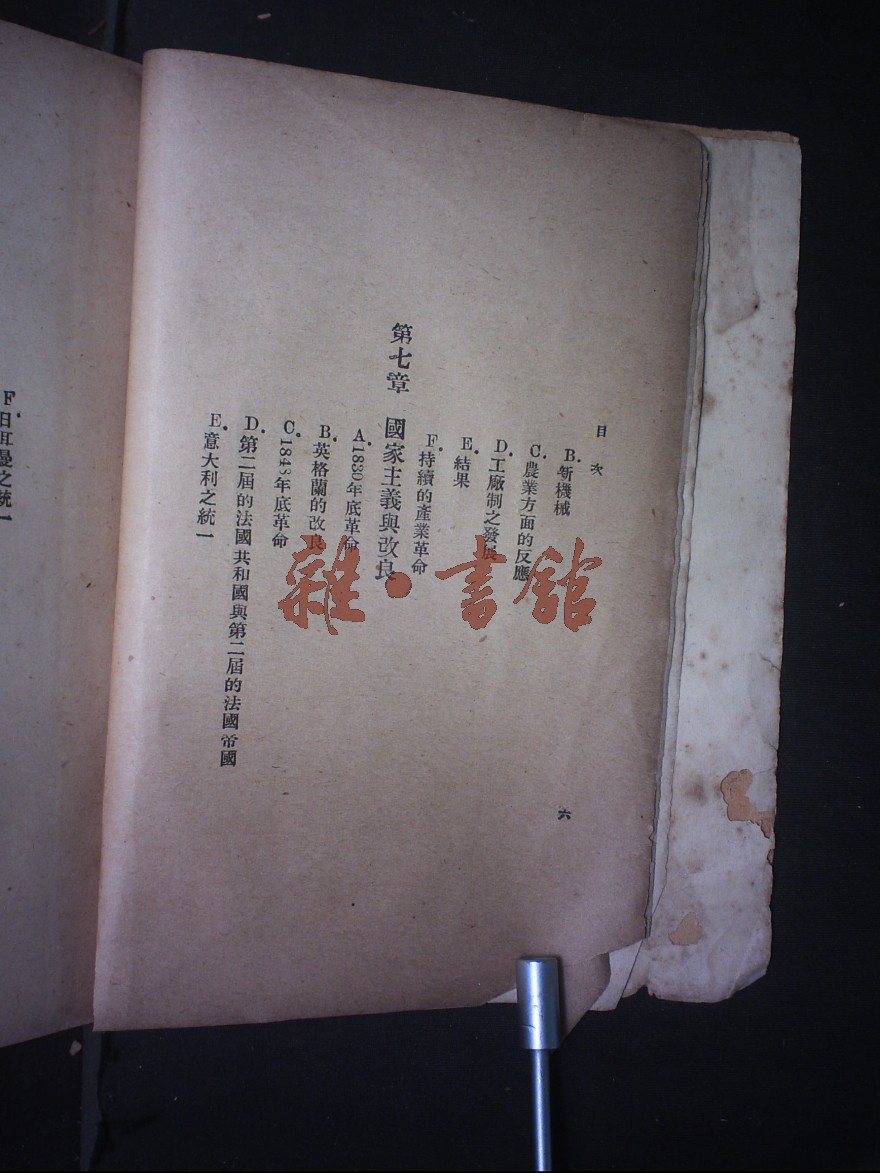 目次
六
B.新機械
C.農業方面的反應
D.工廠制之發展
E.結果
F.持續的產業革命
第七章 國家主義與改良
A.1830年底革命
B.英格蘭的改良
C.1848年底革命
D.第二屆的法國共和國與第二屆的法國帝國
E.意大利之統一
F.日耳曼之統一
雜·書館